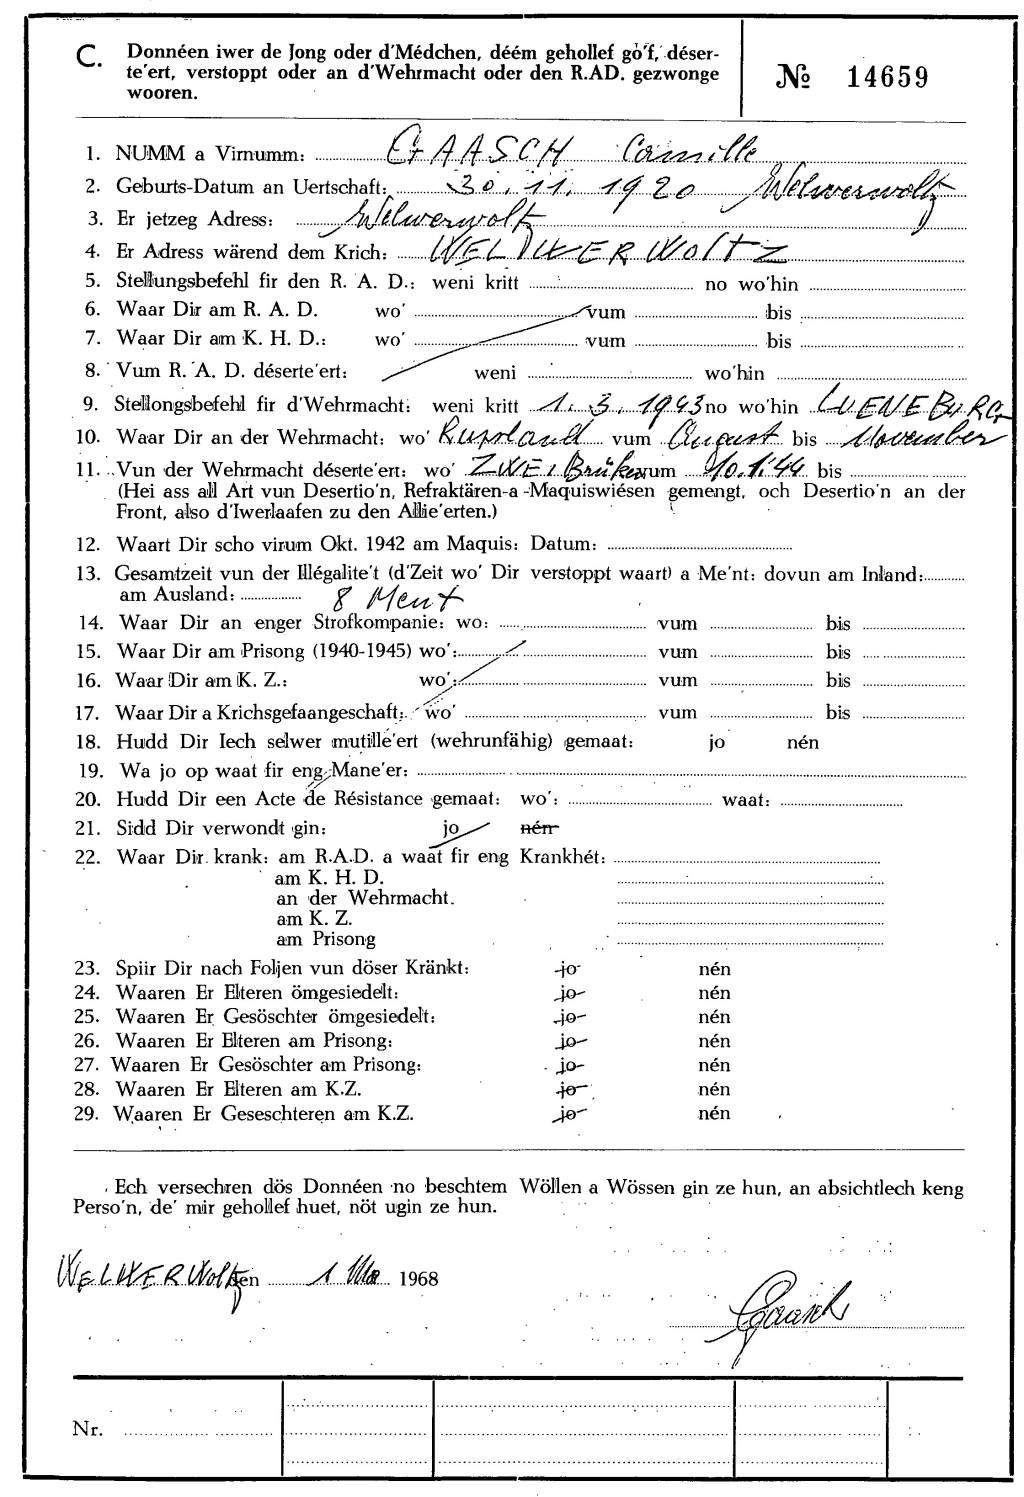 C. Donnéen iwer de Jong oder d'Médchen, déém gehollef go'f, déser-
te'ert, verstoppt oder an d'Wehrmacht oder den R.AD. gezwonge
wooren.
№ 14659
1. NUMM a Virnumm: GAASCH Camille
2. Geburts-Datum an Uertschaft: 30.11.1920 Welwerwoltz
3. Er jetzeg Adress: Welwerwoltz
4. Er Adress wärend dem Krich: WELWERWOLTZ
5. Stellungsbefehl fir den R. A. D.: weni kritt no wo'hin
6. Waar Dir am R. A. D. wo' vum bis
7. Waar Dir am K. H. D.: wo' vum bis
8. Vum R. A. D. déserte'ert: weni wo'hin
9. Stellongsbefehl fir d'Wehrmacht: weni kritt 1. 3. 1943 no wo'hin LUENEBURG
10. Waar Dir an der Wehrmacht: wo' Russland vum August bis November
11. Vun der Wehrmacht déserte'ert: wo' ZWEIBrüken vum 10.1.44 bis
(Hei ass all Art vun Desertio'n, Refraktären-a-Maquiswiésen gemengt, och Desertio'n an der
Front, also d'Iwerlaafen zu den Allie'erten.)
12. Waart Dir scho virum Okt. 1942 am Maquis: Datum:
13. Gesamtzeit vun der Illégalite't (d'Zeit wo' Dir verstoppt waart) a Me'nt: dovun am Inland:
am Ausland: 8 Ment
14. Waar Dir an enger Strofkompanie: wo: vum bis
15. Waar Dir am Prisong (1940-1945) wo': vum bis
16. Waar Dir am K. Z.: wo': vum bis
17. Waar Dir a Krichsgefaangeschaft: wo' vum bis
18. Hudd Dir Iech selwer mutillé'ert (wehrunfähig) gemaat: jo nén
19. Wa jo op waat fir eng Mane'er:
20. Hudd Dir een Acte de Résistance gemaat: wo': waat:
21. Sidd Dir verwondt gin: jo nén
22. Waar Dir krank: am R.A.D. a waat fir eng Krankhét:
am K. H. D.
an der Wehrmacht.
am K. Z.
am Prisong
23. Spiir Dir nach Foljen vun döser Kränkt: jo nén
24. Waaren Er Elteren ömgesiedelt: jo nén
25. Waaren Er Gesöschter ömgesiedelt: jo nén
26. Waaren Er Elteren am Prisong: jo nén
27. Waaren Er Gesöschter am Prisong: jo nén
28. Waaren Er Elteren am K.Z. jo nén
29. Waaren Er Geseschteren am K.Z. jo nén
Ech versechren dös Donnéen no beschtem Wöllen a Wössen gin ze hun, an absichtlech keng
Perso'n, de' mir gehollef huet, nöt ugin ze hun.
WELWERWoltz den 1 Mä 1968
Gaasch
Nr.